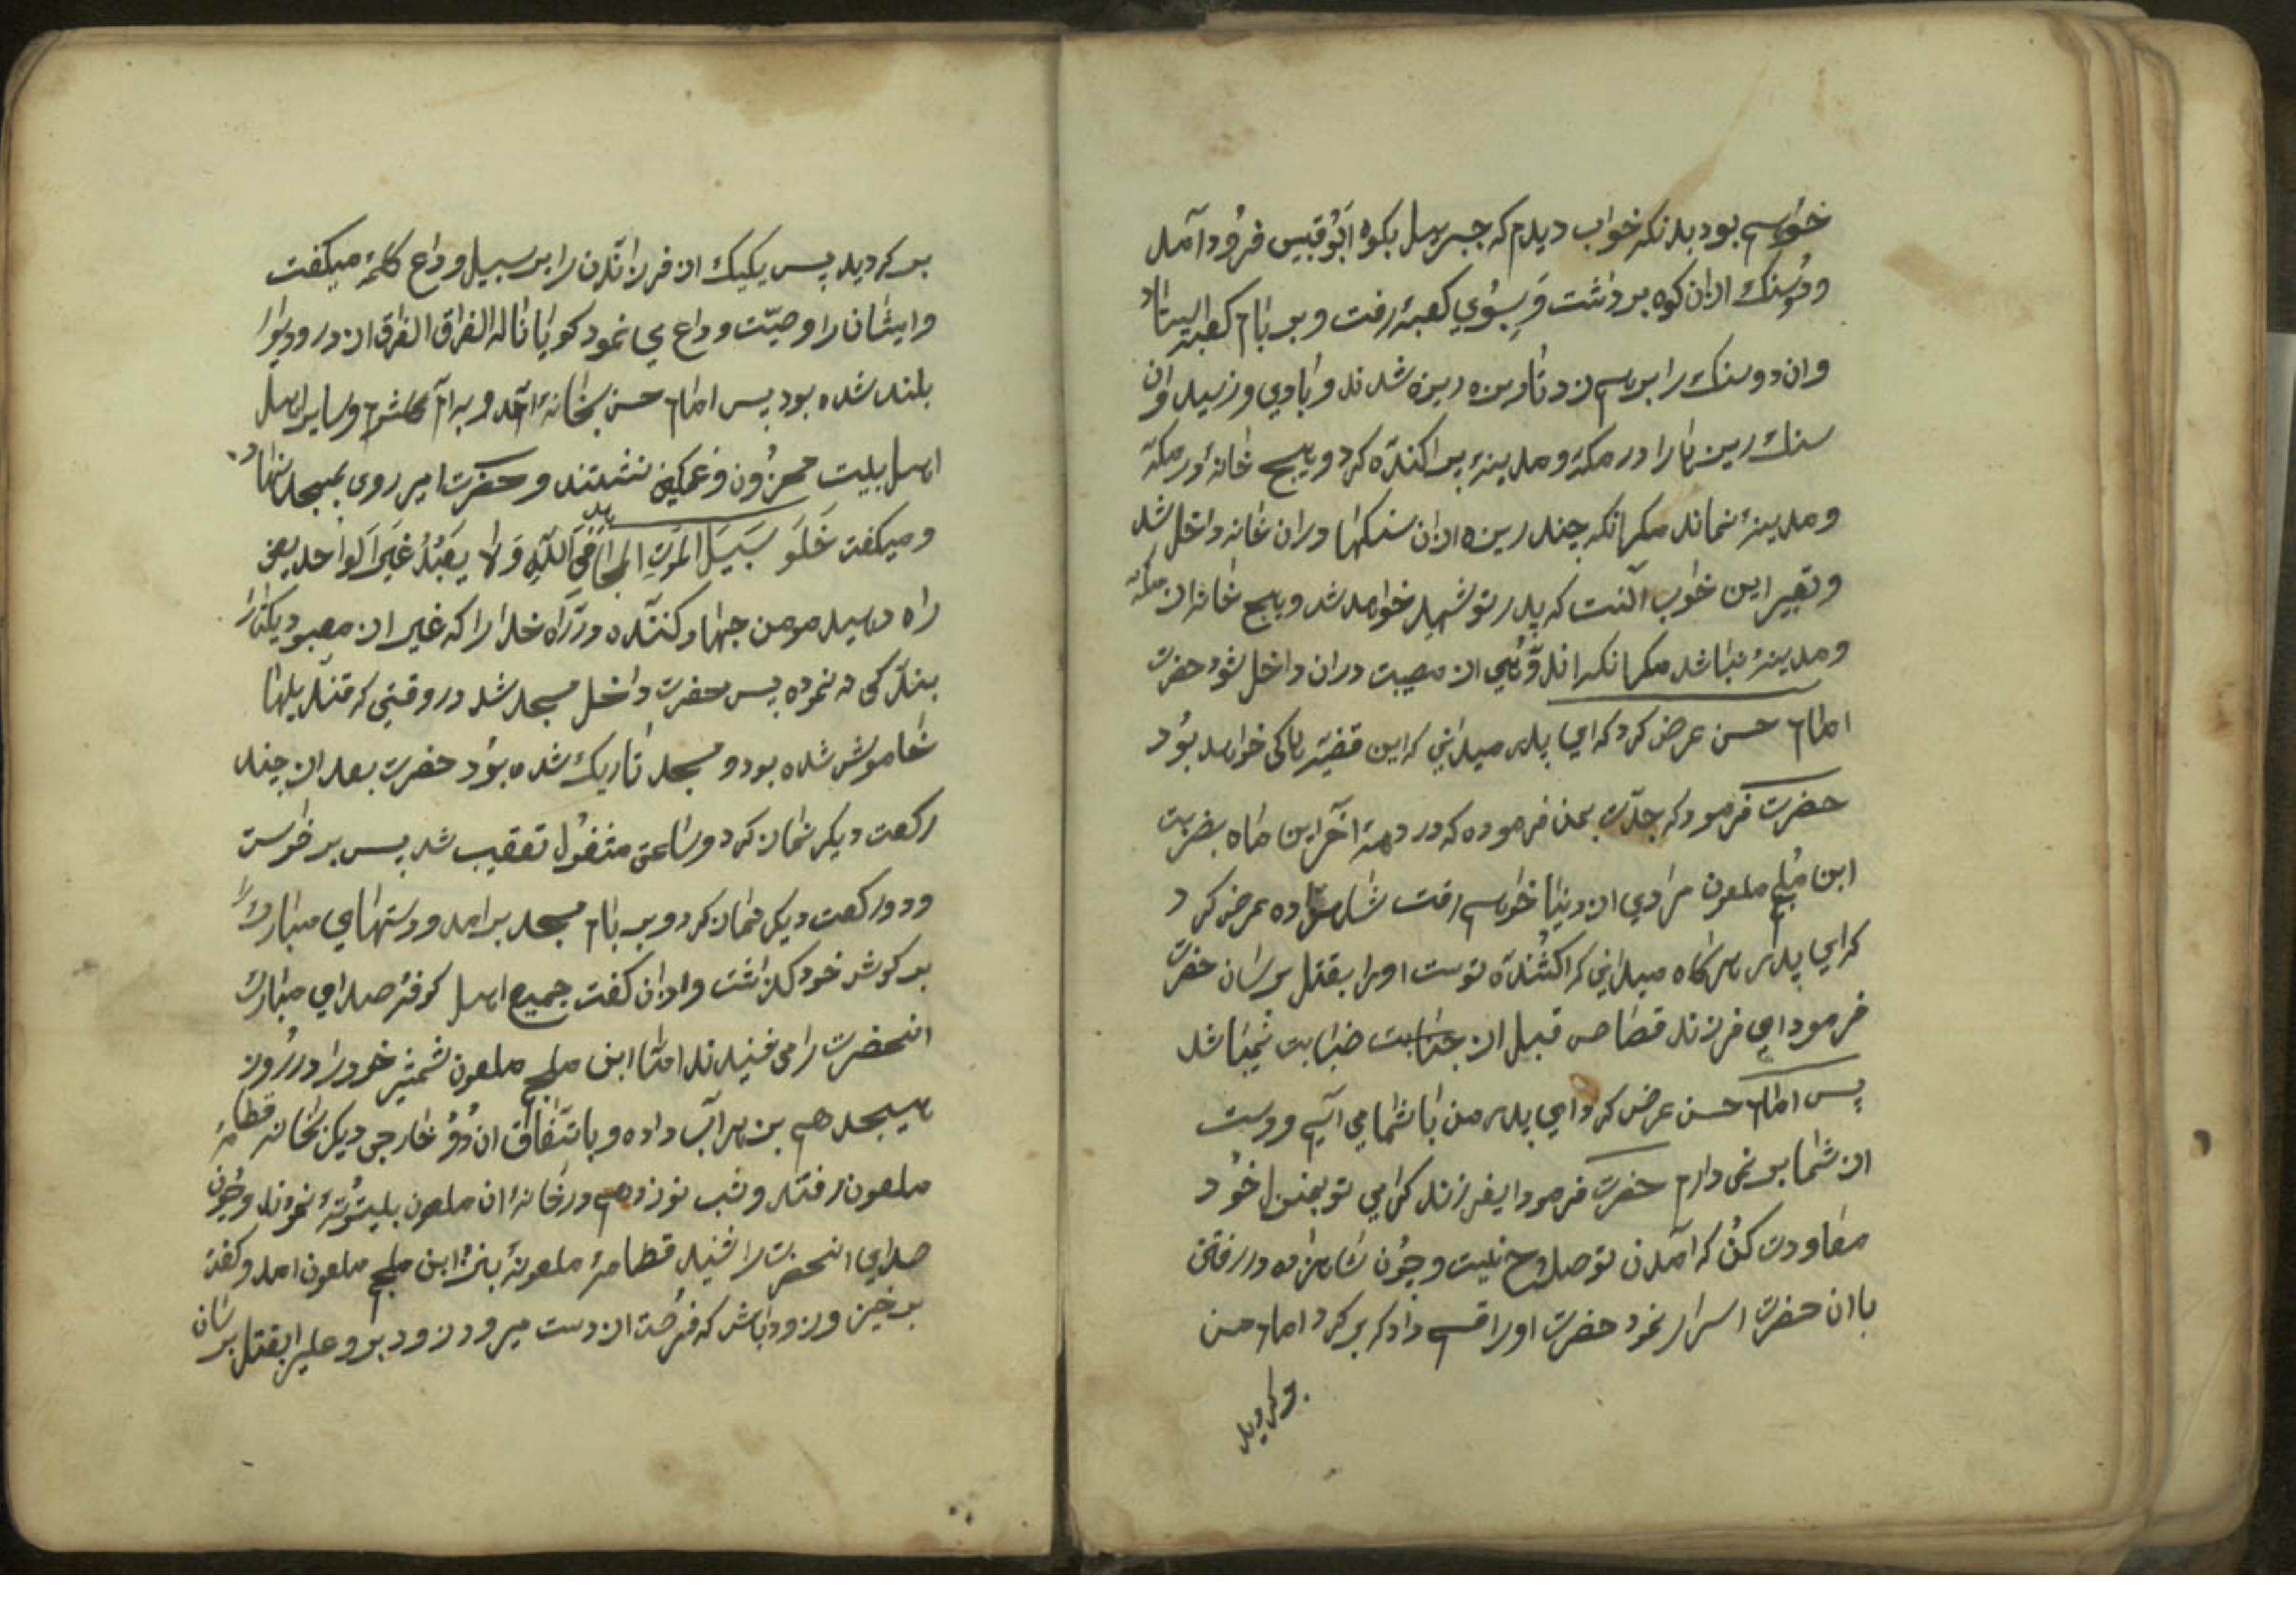 خواهم بود بدانکه خواب دیدم که جبرییل بکوه اَبُوقبیس فرُود آمد
ودُوسنک ازان کوه برداشت وَ بِسُوي کعبهٔ رفت و بر بام کعبه ایستاد
وان دو سنک را برهم زد تا ریزه ریزه شدند و بادي وزید وان
سنک ریزها را در مکهٔ و مدینهٔ پراکندَه کرد و هیچ خانهٔ در مکهٔ
و مدینهٔ نماند مکر انکه چند ریزه ازان سنکها دران خانه داخل شد
و تعبیر این خواب آنست که پدر تو شهید خواهد شد و هیچ خانه از مکه
و مدینهٔ نباشد مکر انکه اندوهي از مصیبت دران داخل شود حضرت
امام حسن عرض کرد که اي پدر میداني که این قضیه کی خواهد بوُد
حضرت فرمود که جدّت بمن فرموده که در دههٔ آخر این ماه بضربت
ابن مُلجم ملعون مرادي از دنیا خواهم رفت شاهزاده عرض کرد
که اي پدر هرکاه میداني که کشندَه توست اورا بقتل برسان حضرت
فرمود اي فرزند قصاص قبل از جنایت نمیباشد
پس امام حسن عرض کرد اي پدر من با شما مي آیم و دست
از شما بر نمی دارم حضرت فرمود ایفرزند کرامي تو بمنزل خوُد
معاودت کُن که آمدن تو صلاح نیست و چوُن شاهزاده در رفتن
با ان حضرت اسرار نمود حضرت اورا قسم داد که بر کرد امام حسن
بر کردید
بر کردید پس یکیک از فرزاندن را بر سبیل وداع کلمهٔ میکفت
و ایشان را وصیّت و داع می نمود کویا ناله الفراق الفراق از در و دیوار
بلند شده بود پس امام حسن بخانهٔ آمد و با اُم کلثوم و سایر اهل
اهل بیت محزوُن و غمکین نشستند و حضرت امیر روی بمسجد نهاد
و میکفت خَلَو سَبیَلَ المؤمنِ المجاهد في اللّهِ وَ لا یعبُدُ غیَر الواحد یعنی
راه دهید مومن جهاد کننده در راه خدا را که غیر از معبود یکتا را
بندکی نه نموده پس حضرت داخل مسجد شد در وقتي که قندیلها
خاموش شده بود و مسجد تاریک شده بوُد حضرت بعد از چند
رکعت دیکر نماز کرد و ساعتی مشغوُل تعقیب شد پس برخواست
و دو رکعت دیکر نماز کرد و بر بام مسجد برامد و دستهاي مبارک را
بر کوش خود کذاشت و اذان کفت جمیع اهل کوفهٔ صداي مبارک
انحضرت را می شنیدند امّا ابن ملجم ملعون شمشیر خود را در روُز
هیجدهم بزهر آب داده و باتّفاق ان دوُ خارجی دیکر بخانه قطامهٔ
ملعون رفتند و شب نوزدهم در خانهٔ ان ملعون بلیتوُتهٔ نموُند و چوُن
صداي انحضرت را شنید قطامهٔ ملعونهٔ بنزد ابن ملجم ملعون امد و کفت
بر خیز و زود باش که فرصت از دست میرود زود برو علیرا بقتل برسان